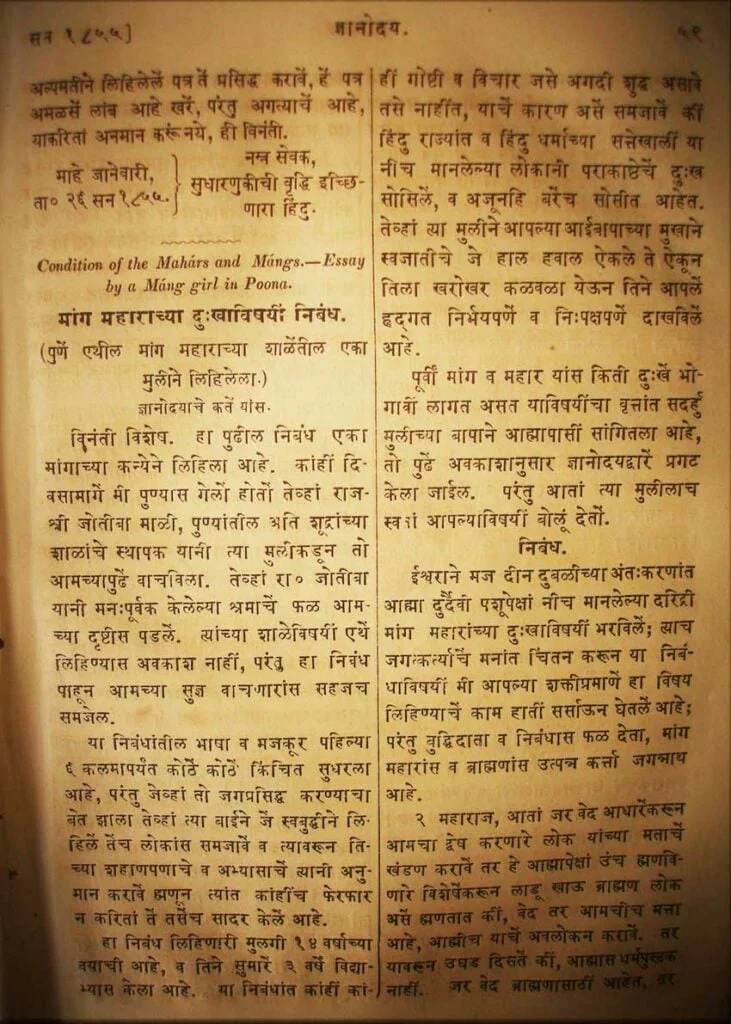 सन १८५५]
ज्ञानोदय.
५९
अल्पमतीने लिहिलेलें पत्र तें प्रसिद्ध करावें, हें पत्र
अमळसें लांब आहे खरें, परंतु अगत्याचें आहे,
याकरितां अनमान करूं नये, ही विनंती.
माहे जानेवारी,
ता० २६ सन १८५५.
नम्र सेवक,
सुधारणुकीची वृद्धि इच्छि-
णारा हिंदु.
Condition of the Mahárs and Mángs.—Essay
by a Máng girl in Poona.
मांग महाराच्या दुःखाविषयीं निबंध.
(पुणें एथील मांग महाराच्या शाळेंतील एका
मुलीने लिहिलेला.)
ज्ञानोदयाचे कर्ते यांस.
विनंती विशेष. हा पुढील निबंध एका
मांगाच्या कन्येने लिहिला आहे. कांहीं दि-
वसामागें मी पुण्यास गेलों होतों तेव्हां राज-
श्री जोतीबा माळी, पुण्यांतील अति शूद्रांच्या
शाळांचे स्थापक यानी त्या मुलीकडून तो
आमच्यापुढें वाचविला. तेव्हां रा० जोतीबा
यानी मनःपूर्वक केलेल्या श्रमाचें फळ आम-
च्या दृष्टीस पडलें. त्यांच्या शाळेविषयीं एथें
लिहिण्यास अवकाश नाहीं, परंतु हा निबंध
पाहून आमच्या सुज्ञ वाचणारांस सहजच
समजेल.
या निबंधांतील भाषा व मजकूर पहिल्या
६ कलमापर्यंत कोठें कोठें किंचित सुधरला
आहे, परंतु जेव्हां तो जगप्रसिद्ध करण्याचा
बेत झाला तेव्हां त्या बाईने जें स्वबुद्धीने लि-
हिलें तेंच लोकांस समजावें व त्यावरून ति-
च्या शहाणपणाचे व अभ्यासाचें त्यानी अनु-
मान करावें ह्मणून त्यांत कांहींच फेरफार
न करितां तें तसेंच सादर केलें आहे.
हा निबंध लिहिणारी मुलगी १४ वर्षाच्या
वयाची आहे, व तिने सुमारें ३ वर्षें विद्या-
भ्यास केला आहे. या निबंधांत कांहीं कां-
हीं गोष्टी व विचार जसे अगदी शुद्ध असावे
तसे नाहींत, याचें कारण असें समजावें कीं
हिंदु राज्यांत व हिंदु धर्माच्या सत्तेखालीं या
नीच मानलेल्या लोकानी पराकाष्ठेचें दुःख
सोसिलें, व अजूनहि बरेंच सोसीत आहेत.
तेव्हां त्या मुलीने आपल्या आईबापाच्या मुखाने
स्वजातीचे जे हाल हवाल ऐकले ते ऐकून
तिला खरोखर कळवळा येऊन तिने आपलें
हृद्गत निर्भयपणें व निःपक्षपणें दाखविलें
आहे.
पूर्वीं मांग व महार यांस किती दुःखें भो-
गावीं लागत असत याविषयींचा वृत्तांत सदर्हु
मुलीच्या बापाने आह्मापासीं सांगितला आहे,
तो पुढें अवकाशानुसार ज्ञानोदयद्वारें प्रगट
केला जाईल. परंतु आतां त्या मुलीलाच
आपल्याविषयीं बोलूं देतों.
निबंध.
ईश्वराने मज दीन दुबळीच्या अंतःकरणांत
आह्मा दुर्दैवी पशूपेक्षां नीच मानलेल्या दरिद्री
मांग महारांच्या दुःखाविषयीं भरविलें; त्याच
जगत्कर्त्याचें मनांत चिंतन करून या निबं-
धाविषयीं मी आपल्या शक्तीप्रमाणें हा विषय
लिहिण्याचें काम हातीं सर्साऊन घेतलें आहे;
परंतु बुद्धिदाता व निबंधास फळ देता, मांग
महारांस व ब्राह्मणांस उत्पन्न कर्त्ता जगन्नाथ
आहे.
२ महाराज, आतां जर वेद आधारेंकरून
आमचा द्वेष करणारे लोक यांच्या मताचें
खंडण करावें तर हे आह्मापेक्षां उंच ह्मणवि-
णारे विशेषेंकरून लाडू खाऊ ब्राह्मण लोक
असें ह्मणतात कीं, वेद तर आमचीच मत्ता
आहे, आह्मीच याचें अवलोकन करावें. तर
यावरून उघड दिसतें कीं, आह्मास धर्मपुस्तक
नाहीं. जर वेद ब्राह्मणासाठीं आहेत, तर